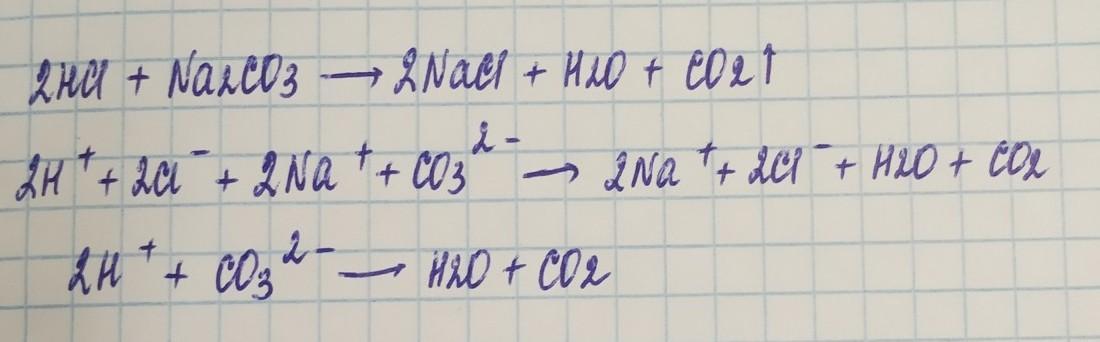 2HCl + Na2CO3 → 2NaCl + H2O + CO2↑
2H⁺ + 2Cl⁻ + 2Na⁺ + CO3²⁻ → 2Na⁺ + 2Cl⁻ + H2O + CO2
2H⁺ + CO3²⁻ → H2O + CO2